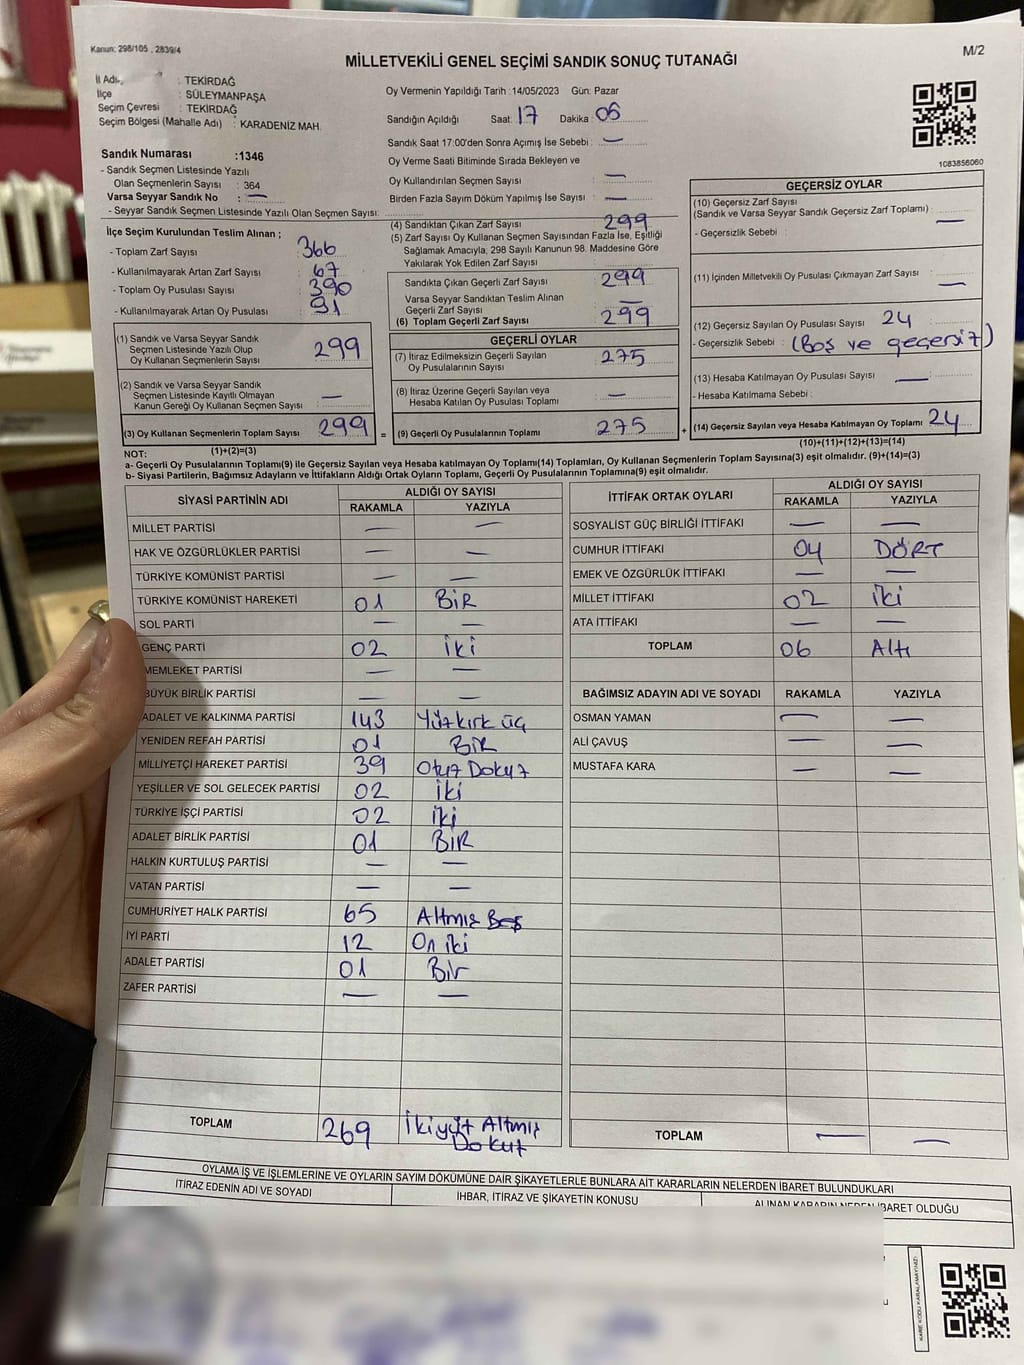 Kanun: 298/105 , 2839/4
M/2
MİLLETVEKİLİ GENEL SEÇİMİ SANDIK SONUÇ TUTANAĞI
İl Adı : TEKİRDAĞ
İlçe : SÜLEYMANPAŞA
Seçim Çevresi : TEKİRDAĞ
Seçim Bölgesi (Mahalle Adı) : KARADENİZ MAH.
Oy Vermenin Yapıldığı Tarih :14/05/2023 Gün: Pazar
Sandığın Açıldığı Saat: 17 Dakika : 05
Sandık Saat 17:00'den Sonra Açımış İse Sebebi : —
Oy Verme Saati Bitiminde Sırada Bekleyen ve
Oy Kullandırılan Seçmen Sayısı : —
Birden Fazla Sayım Döküm Yapılmış İse Sayısı : —
1083856060
Sandık Numarası :1346
- Sandık Seçmen Listesinde Yazılı
Olan Seçmenlerin Sayısı : 364
Varsa Seyyar Sandık No : —
- Seyyar Sandık Seçmen Listesinde Yazılı Olan Seçmen Sayısı:
İlçe Seçim Kurulundan Teslim Alınan ;
- Toplam Zarf Sayısı : 366
- Kullanılmayarak Artan Zarf Sayısı : 67
- Toplam Oy Pusulası Sayısı : 390
- Kullanılmayarak Artan Oy Pusulası : 91
(1) Sandık ve Varsa Seyyar Sandık
Seçmen Listesinde Yazılı Olup
Oy Kullanan Seçmenlerin Sayısı : 299
(2) Sandık ve Varsa Seyyar Sandık
Seçmen Listesinde Kayıtlı Olmayan
Kanun Gereği Oy Kullanan Seçmen Sayısı : —
(3) Oy Kullanan Seçmenlerin Toplam Sayısı 299 =
(1)+(2)=(3)
(4) Sandıktan Çıkan Zarf Sayısı : 299
(5) Zarf Sayısı Oy Kullanan Seçmen Sayısından Fazla İse, Eşitliği
Sağlamak Amacıyla; 298 Sayılı Kanunun 98. Maddesine Göre
Yakılarak Yok Edilen Zarf Sayısı :
Sandıkta Çıkan Geçerli Zarf Sayısı : 299
Varsa Seyyar Sandıktan Teslim Alınan
Geçerli Zarf Sayısı : —
(6) Toplam Geçerli Zarf Sayısı : 299
GEÇERLİ OYLAR
(7) İtiraz Edilmeksizin Geçerli Sayılan
Oy Pusulalarının Sayısı : 275
(8) İtiraz Üzerine Geçerli Sayılan veya
Hesaba Katılan Oy Pusulası Toplamı : —
(9) Geçerli Oy Pusulalarının Toplamı : 275 +
GEÇERSİZ OYLAR
(10) Geçersiz Zarf Sayısı
(Sandık ve Varsa Seyyar Sandık Geçersiz Zarf Toplamı) : —
- Geçersizlik Sebebi :
(11) İçinden Milletvekili Oy Pusulası Çıkmayan Zarf Sayısı : —
(12) Geçersiz Sayılan Oy Pusulası Sayısı : 24
- Geçersizlik Sebebi : (Boş ve geçersiz)
(13) Hesaba Katılmayan Oy Pusulası Sayısı : —
- Hesaba Katılmama Sebebi :
(14) Geçersiz Sayılan veya Hesaba Katılmayan Oy Toplamı : 24
(10)+(11)+(12)+(13)=(14)
NOT:
a- Geçerli Oy Pusulalarının Toplamı(9) ile Geçersiz Sayılan veya Hesaba katılmayan Oy Toplamı(14) Toplamları, Oy Kullanan Seçmenlerin Toplam Sayısına(3) eşit olmalıdır. (9)+(14)=(3)
b- Siyasi Partilerin, Bağımsız Adayların ve İttifakların Aldığı Ortak Oyların Toplamı, Geçerli Oy Pusulalarının Toplamına(9) eşit olmalıdır.
SİYASİ PARTİNİN ADI ALDIĞI OY SAYISI
RAKAMLA YAZIYLA
MİLLET PARTİSİ — —
HAK VE ÖZGÜRLÜKLER PARTİSİ — —
TÜRKİYE KOMÜNİST PARTİSİ — —
TÜRKİYE KOMÜNİST HAREKETİ 01 BİR
SOL PARTİ — —
GENÇ PARTİ 02 İki
MEMLEKET PARTİSİ — —
BÜYÜK BİRLİK PARTİSİ — —
ADALET VE KALKINMA PARTİSİ 143 Yüzkırk üç
YENİDEN REFAH PARTİSİ 01 BİR
MİLLİYETÇİ HAREKET PARTİSİ 39 Otuz Dokuz
YEŞİLLER VE SOL GELECEK PARTİSİ 02 İki
TÜRKİYE İŞÇİ PARTİSİ 02 İki
ADALET BİRLİK PARTİSİ 01 BİR
HALKIN KURTULUŞ PARTİSİ — —
VATAN PARTİSİ — —
CUMHURİYET HALK PARTİSİ 65 Altmış Beş
İYİ PARTİ 12 On iki
ADALET PARTİSİ 01 Bir
ZAFER PARTİSİ — —
TOPLAM 269 İkiyüz Altmış
Dokuz
İTTİFAK ORTAK OYLARI ALDIĞI OY SAYISI
RAKAMLA YAZIYLA
SOSYALİST GÜÇ BİRLİĞİ İTTİFAKI — —
CUMHUR İTTİFAKI 04 DÖRT
EMEK VE ÖZGÜRLÜK İTTİFAKI — —
MİLLET İTTİFAKI 02 İki
ATA İTTİFAKI — —
TOPLAM 06 Altı
BAĞIMSIZ ADAYIN ADI VE SOYADI RAKAMLA YAZIYLA
OSMAN YAMAN — —
ALİ ÇAVUŞ — —
MUSTAFA KARA — —
TOPLAM — —
OYLAMA İŞ VE İŞLEMLERİNE VE OYLARIN SAYIM DÖKÜMÜNE DAİR ŞİKAYETLERLE BUNLARA AİT KARARLARIN NELERDEN İBARET BULUNDUKLARI
İTİRAZ EDENİN ADI VE SOYADI
İHBAR, İTİRAZ VE ŞİKAYETİN KONUSU
ALINAN KARARIN NEDEN İBARET OLDUĞU
KARE KODU KARALAMAYINIZ!